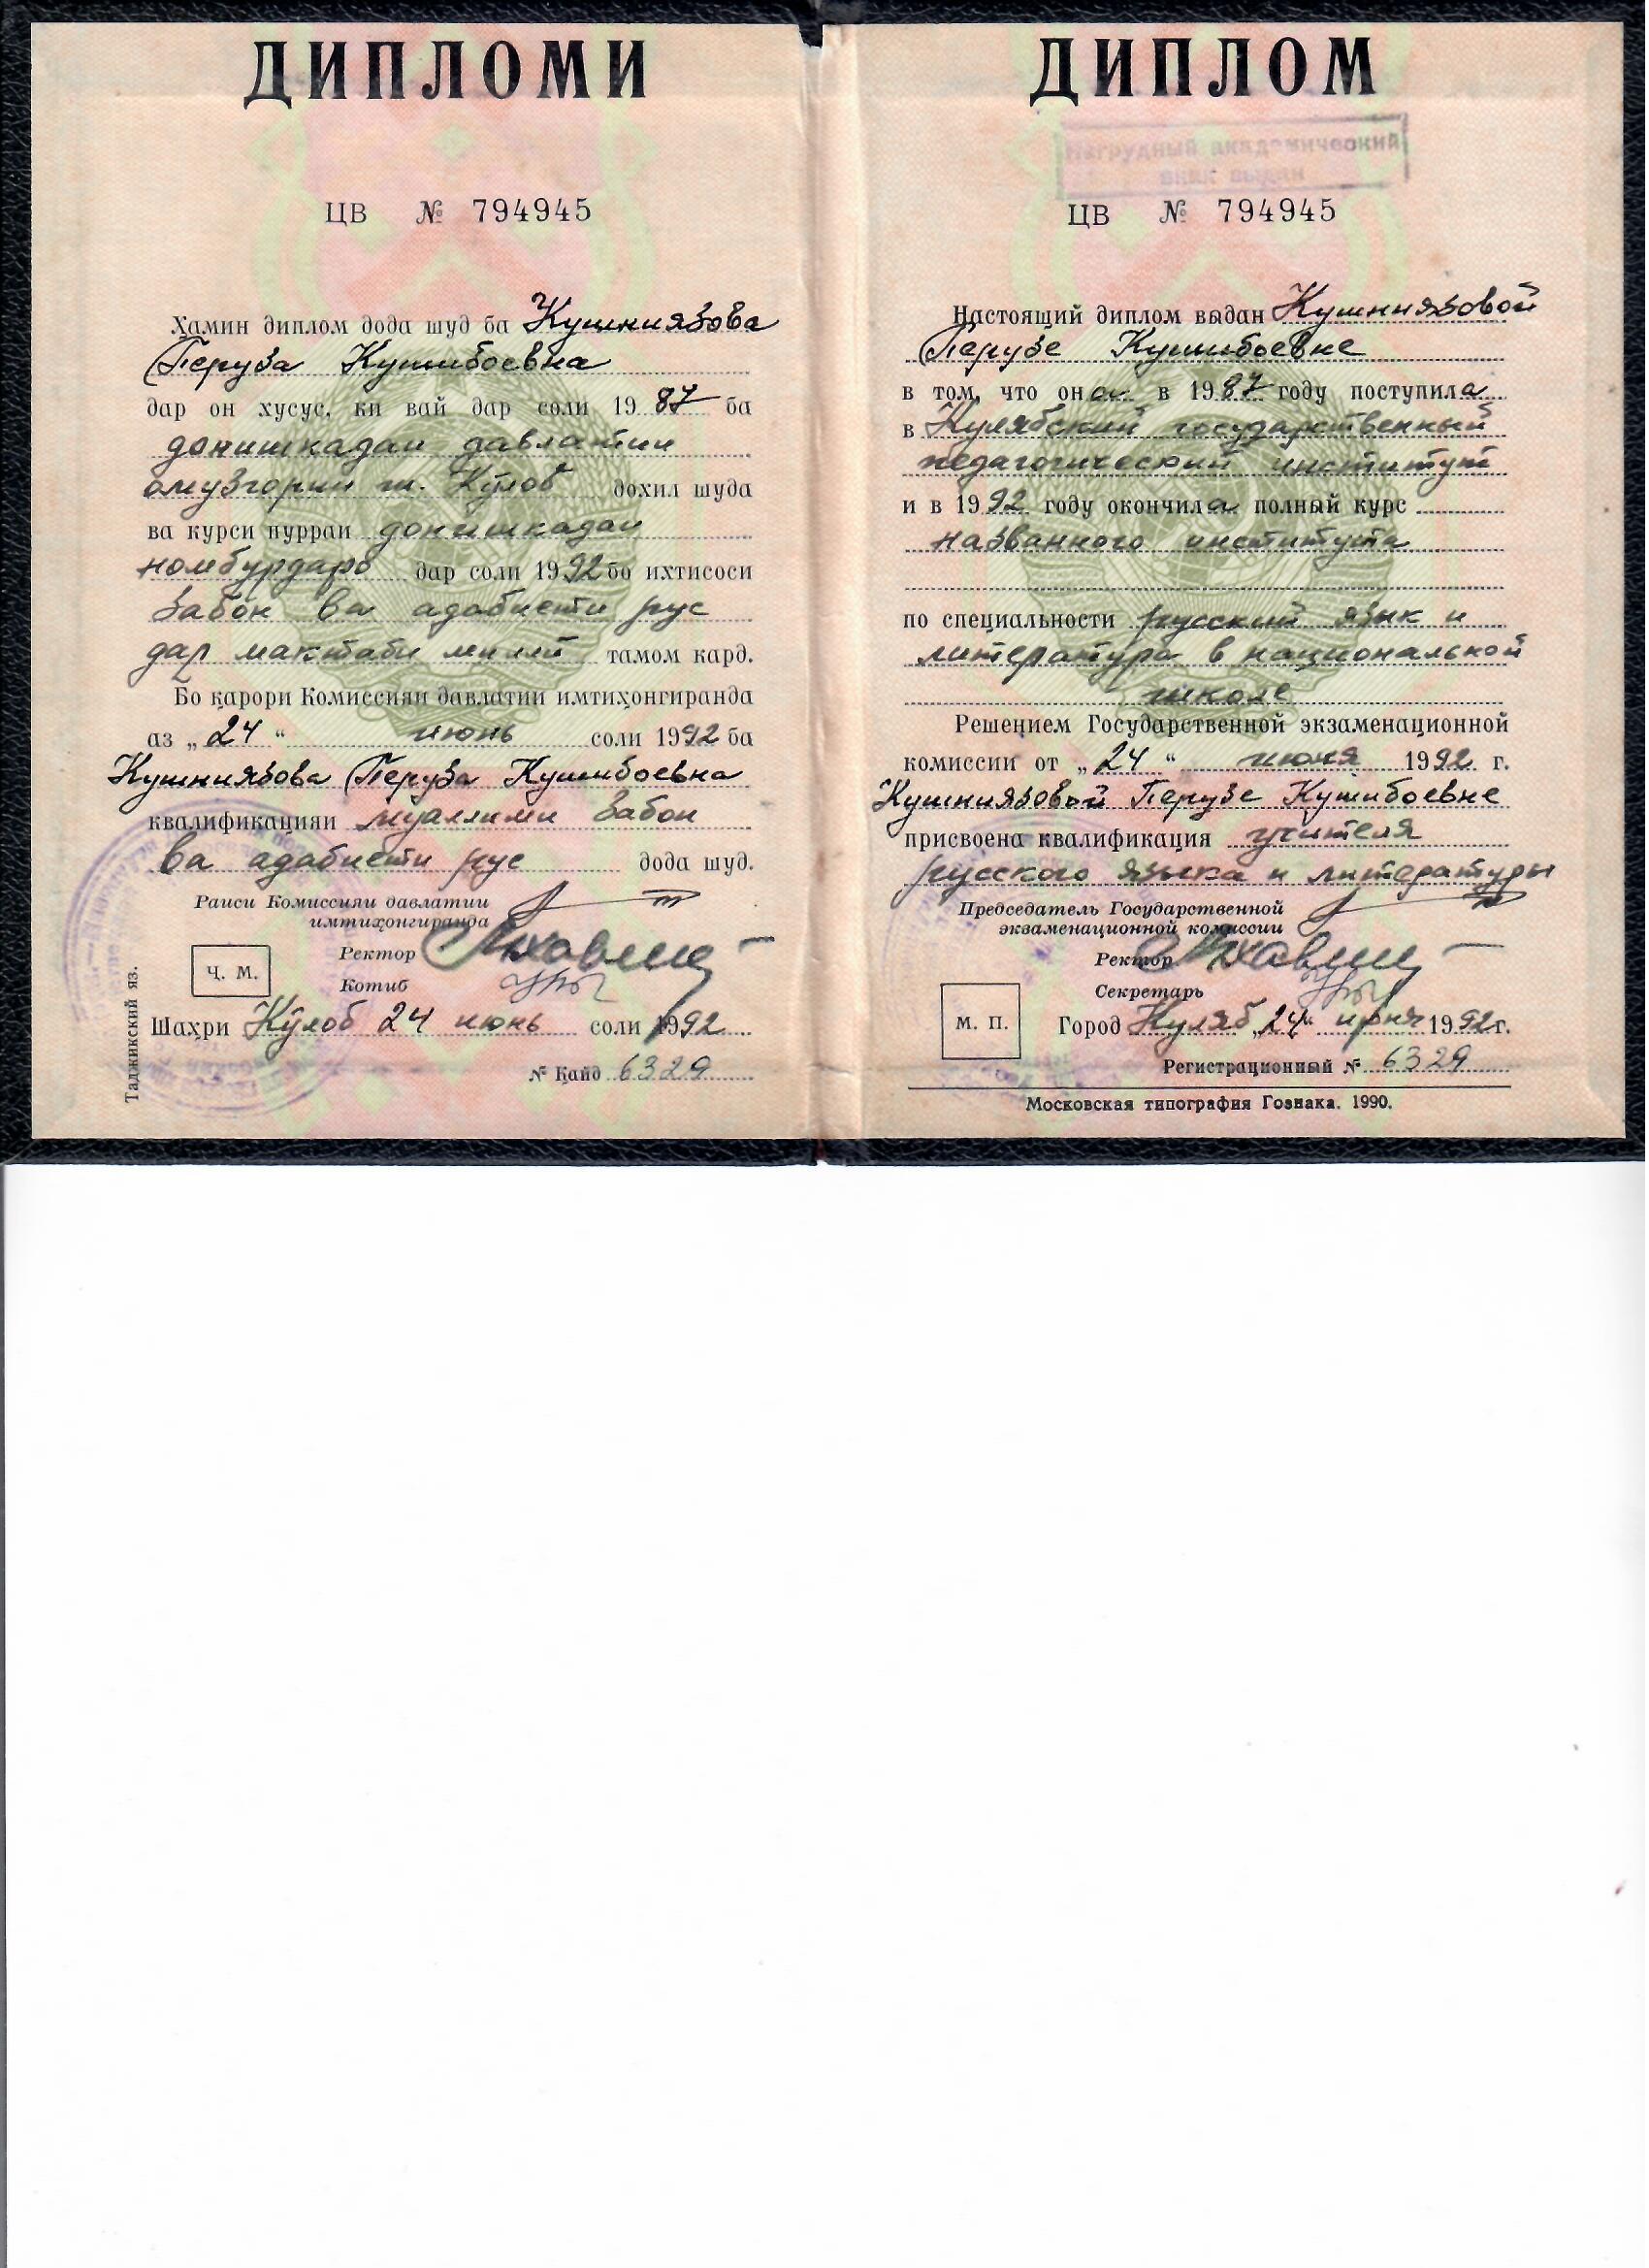 ДИПЛОМИ
ЦВ № 794945
Ҳамин диплом дода шуд ба Кушниязова
Перуза Кушибоевна
дар он хусус, ки вай дар соли 1987 ба
донишкадаи давлатии
омузгории ш. Кӯлоб дохил шуда
ва курси пурраи донишкадаи
номбурдаро дар соли 1992 бо ихтисоси
Забон ва адабиети рус
дар мактаби миллӣ тамом кард.
Бо қарори Комиссияи давлатии имтиҳонгиранда
аз „24“ июнь соли 1992 ба
Кушниязова Перуза Кушибоевна
квалификацияи муаллими забон
ва адабиети рус дода шуд.
Раиси Комиссияи давлатии
имтиҳонгиранда
Ректор
Котиб
Ҷ. М.
Шаҳри Кӯлоб 24 июнь соли 1992
№ Қайд 6329
Таджикский яз.
ДИПЛОМ
Нагрудный академический
знак выдан
ЦВ № 794945
Настоящий диплом выдан Кушниязовой
Перузе Кушибоевне
в том, что она в 1987 году поступила
в Кулябский государственный
педагогический институт
и в 1992 году окончила полный курс
названного института
по специальности русский язык и
литература в национальной
школе
Решением Государственной экзаменационной
комиссии от „24“ июня 1992 г.
Кушниязовой Перузе Кушибоевне
присвоена квалификация учителя
русского языка и литературы
Председатель Государственной
экзаменационной комиссии
Ректор
Секретарь
М. П.
Город Куляб „24“ июня 1992 г.
Регистрационный № 6329
Московская типография Гознака. 1990.